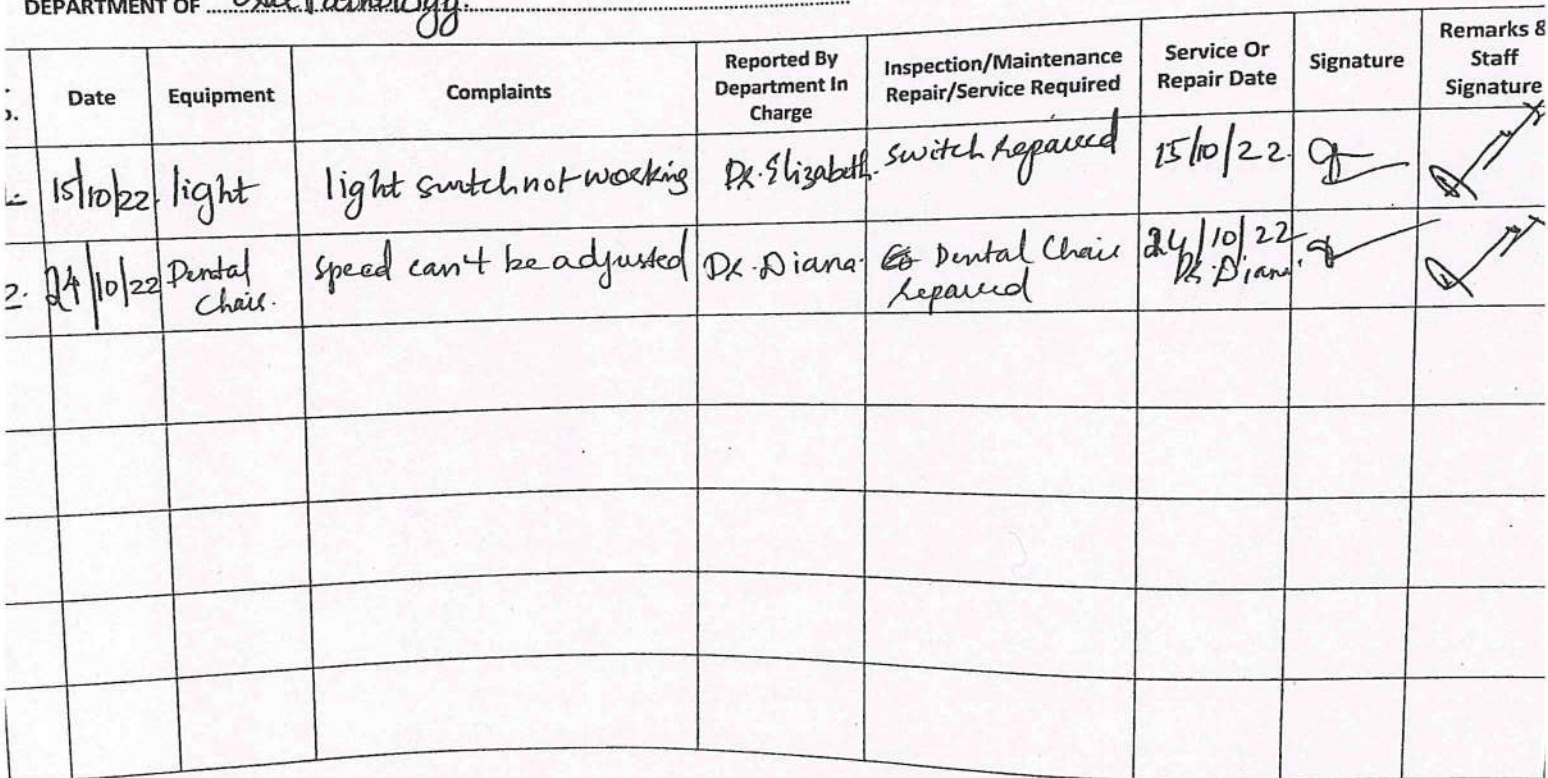 DEPARTMENT OF Oral Pathology.
Date Equipment Complaints Reported By Department In Charge Inspection/Maintenance Repair/Service Required Service Or Repair Date Signature Remarks & Staff Signature
15/10/22. light light switch not working Dr. Elizabeth. Switch repaired 15/10/22.
2. 24/10/22 Dental Chair. Speed can't be adjusted Dr. Diana. Dental Chair repaired 24/10/22 Dr. Diana.